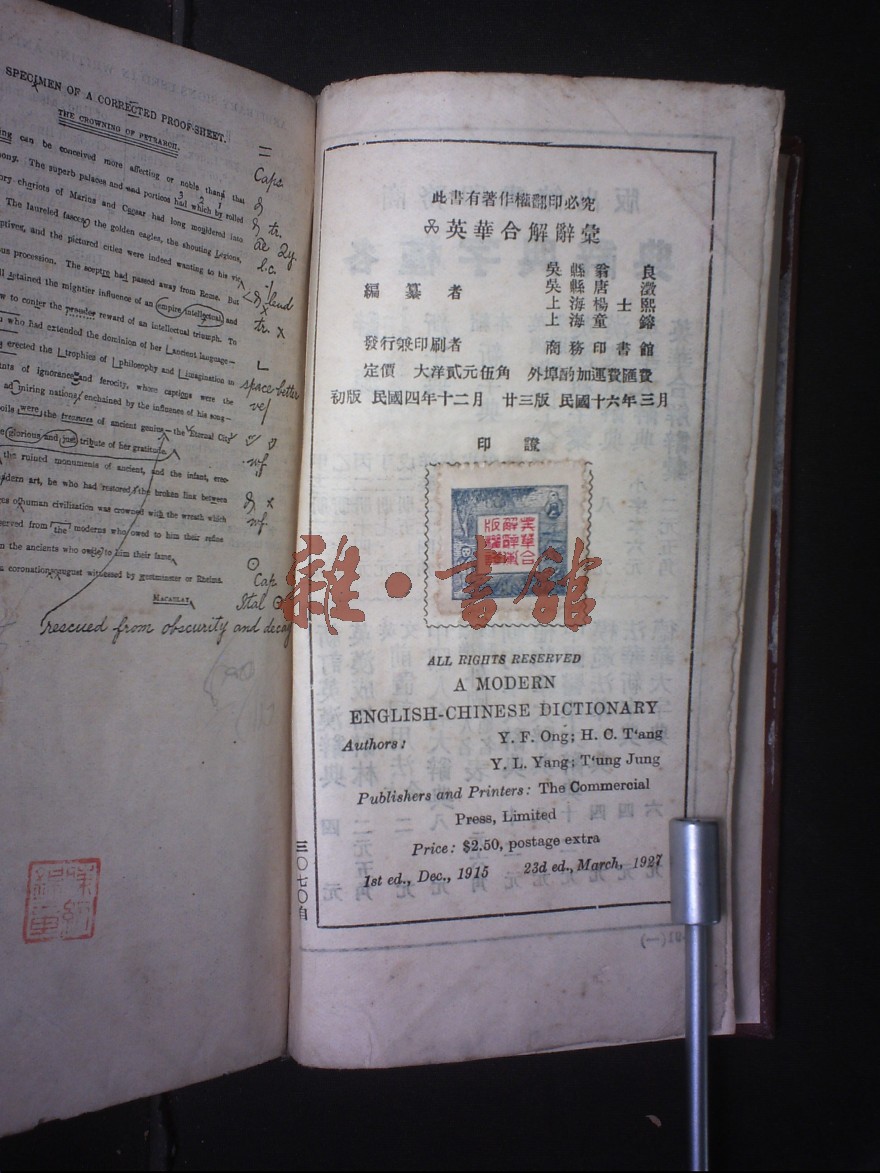 SPECIMEN OF A CORRECTED PROOF-SHEET.
THE CROWNING OF PETRARCH.
ing can be conceived more affecting or noble than that
ony. The superb palaces and porticos had which by rolled
3 2 1
ory chariots of Marius and Caesar had long mouldered into
The laureled fasces, the golden eagles, the shouting Legions,
ptives, and the pictured cities were indeed wanting to his
ous procession. The sceptre had passed away from Rome. But
ll retained the mightier influence of an empire intellectual, and
ow to confer the prouder reward of an intellectual triumph. To
who had extended the dominion of her ancient language—
erected the trophies of philosophy and imagination in
nts of ignorance and ferocity, whose captives were the
admiring nations enchained by the influence of his song—
oils were the treasures of ancient genius—the Eternal City
glorious and just tribute of her gratitude.
the ruined monuments of ancient, and the infant, erec-
odern art, he who had restored the broken link between
es of human civilization was crowned with the wreath which
served from the moderns who owed to him their refine
n the ancients who owe to him their fame,
a coronation august witnessed by Westminster or Rheims.
MACAULAY,
Caps
tr.
l.c.
tr. x
space better
wf
wf
Cap
Ital
rescued from obscurity and decay
此書有著作權翻印必究
英華合解辭彙
編纂者
吳縣翁良
吳縣唐澂
上海楊士熙
上海童鎔
發行兼印刷者 商務印書館
定價 大洋貳元伍角 外埠酌加運費匯費
初版 民國四年十二月 廿三版 民國十六年三月
印證
英華合
解辭彙
版權證
雜·書館
ALL RIGHTS RESERVED
A MODERN
ENGLISH-CHINESE DICTIONARY
Authors: Y. F. Ong; H. C. T'ang
Y. L. Yang; T'ung Jung
Publishers and Printers: The Commercial
Press, Limited
Price: $2.50, postage extra
1st ed., Dec., 1915 23d ed., March, 1927
三〇七〇自